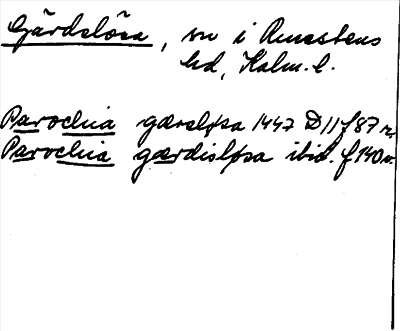 Gärdslösa, sn i Runstens
hd, Kalm. l.
Parochia gærsløsa 1447 D 11 f 87 r,
Parochia gærdisløsa ibid. f 140 v.